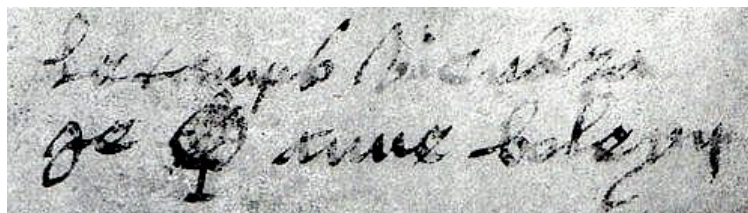 le temps viendra
je anne boleyn